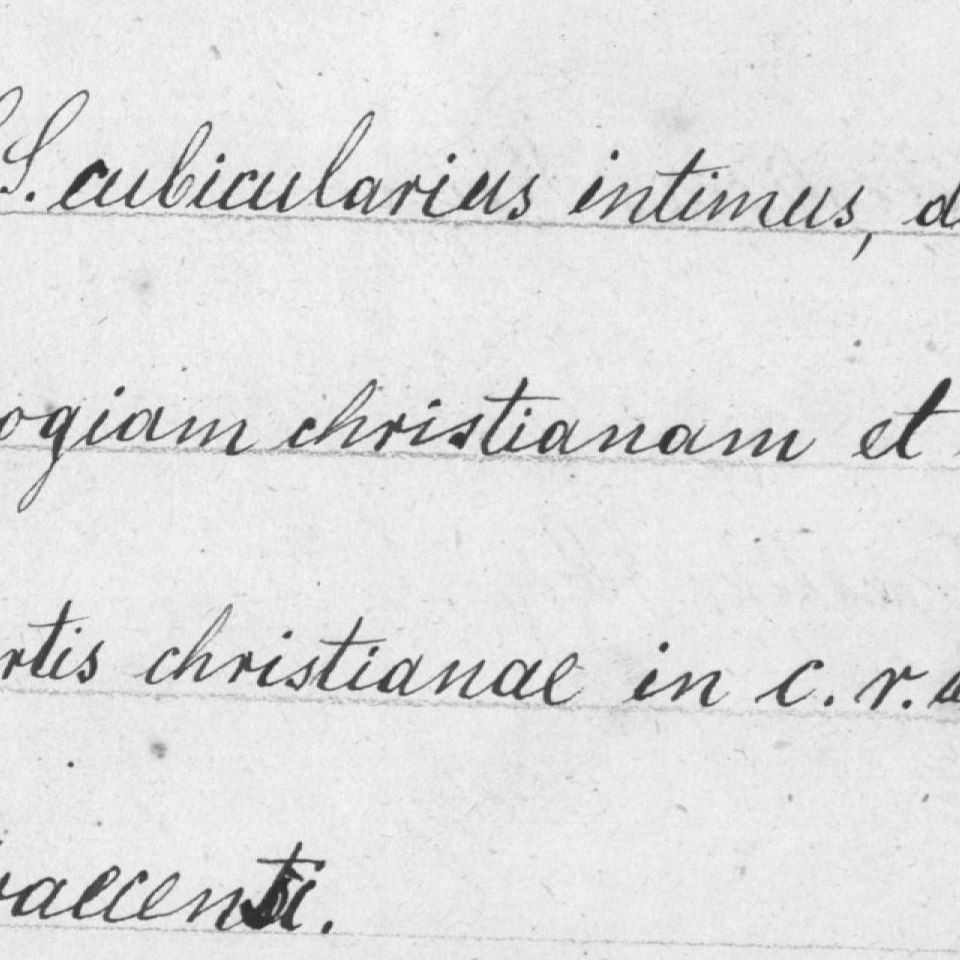 S. cubicularius intimus, d
ogiam christianam et
rtis christianae in c. r.